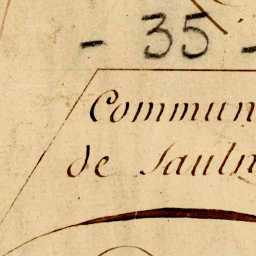 - 35 -
Commun
de Sauln